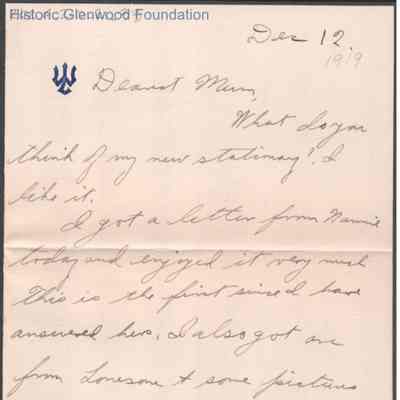 Historic Glenwood Foundation
Dec 12.
1919
Dearest Mum,
What do you
think of my new stationary? I
like it.
I got a letter from Nannie
today and enjoyed it very much
This is the first since I have
answered hers. I also got one
from Lonesome & some pictures